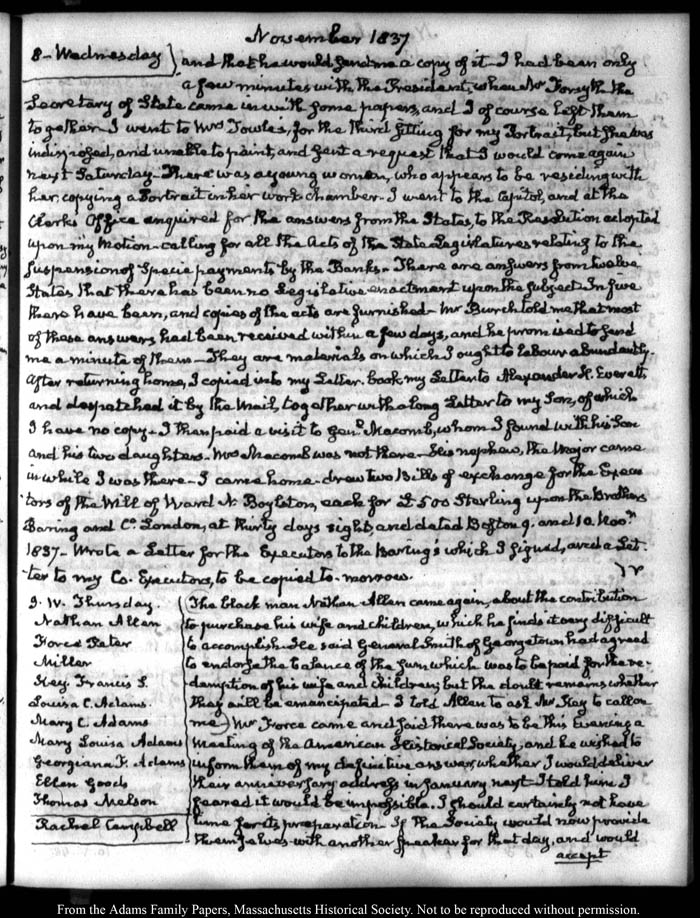 November 1837
8 - Wednesday } and that he would send me a copy of it - I had been only
a few minutes with the President, when Mr Forsyth the
Secretary of State came in with some papers, and I of course left them
together - I went to Mrs Towle's, for the third sitting for my Portrait, but she was
indisposed, and unable to paint, and sent a request that I would come again
next Saturday - There was a young woman, who appears to be residing with
her, copying a Portrait in her work chamber - I went to the Capitol, and at the
Clerks Office enquired for the answers from the States, to the Resolution adopted
upon my motion - calling for all the Acts of the State Legislatures relating to the
suspension of Specie payments by the Banks - There are answers from twelve
States that there has been no Legislative enactment upon the subject - In five
there have been, and copies of the acts are furnished - Mr Burch told me that most
of these answers had been received within a few days, and he promised to send
me a minute of them - They are materials on which I ought to labour abundantly.
After returning home, I copied into my Letter-book my Letter to Alexander H. Everett
and despatched it by the Mail, together with a long Letter to my Son, of which
I have no copy - I than paid a visit to Genl Macomb, whom I found with his Son
and his two daughters - Mrs Macomb was not there - His nephew, the Major came
in while I was there - I came home - drew two Bills of exchange for the Execu
tors of the Will of Ward N. Boylston, each for £500 Sterling upon the Brothers
Baring and Co. London, at thirty days sight, and dated Boston 9. and 10. Novr
1837 - Wrote a Letter for the Executors to the Baring's which I signed, and a Let-
ter to my Co. Executors, to be copied to-morrow.
9. IV. Thursday.
Nathan Allen
Force Peter
Miller
Key Francis S.
Louisa C. Adams.
Mary C. Adams
Mary Louisa Adams
Georgiana F. Adams
Ellen Goods
Thomas Nelson
Rachel Campbell
The black man Nathan Allen came again, about the contribution
to purchase his wife and children, which he finds it very difficult
to accomplish - He said General Smith of Georgetown had agreed
to endorse the balance of the sum which was to be paid for the re-
demption of his wife and children; but the doubt remains whether
they will be emancipated - I told Allen to ask Mr Key to call on
me - Mr Force came and said there was to be this Evening a
meeting of the American Historical Society, and he wished to
inform them of my definitive answer, whether I would deliver
their anniversary address in January next - I told him I
feared it would be impossible. I should certainly not have
time for its preparation - If the Society would now provide
themselves with another speaker for that day, and would
accept
From the Adams Family Papers, Massachusetts Historical Society. Not to be reproduced without permission.